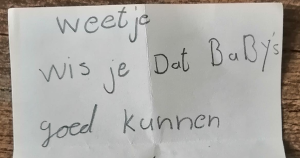 weetje
wis je Dat BaBy's
goed kunnen